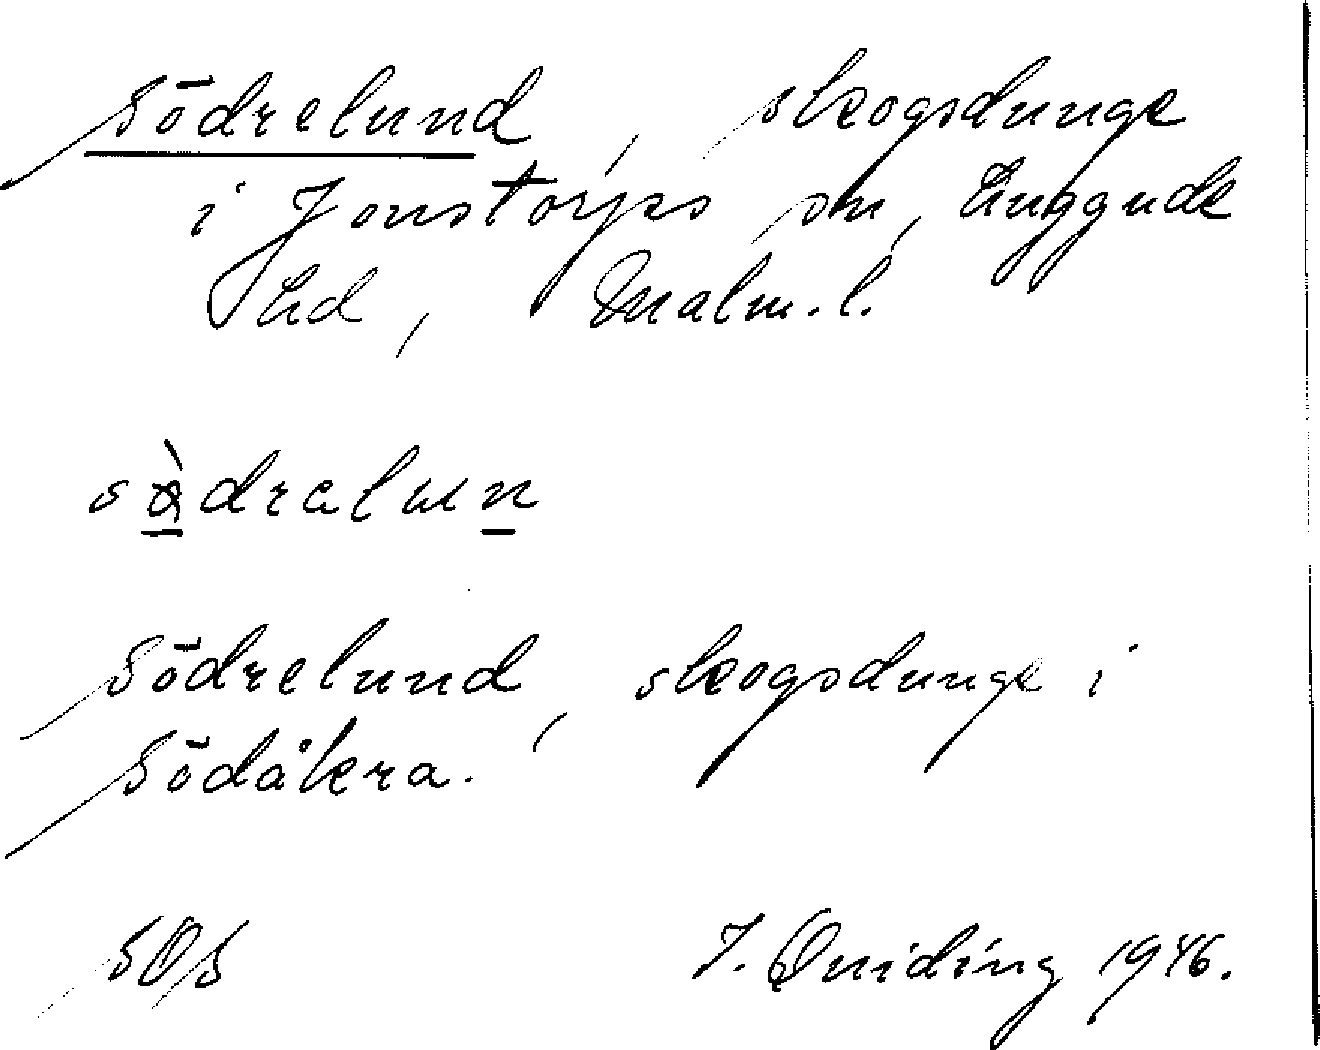 Södrelund, skogsdunge
i Jonstorps sn, Luggude
hd, Malm. l.
södralun
Södrelund, skogsdunge i
Södåkra.
SOS J. Quiding 1946.